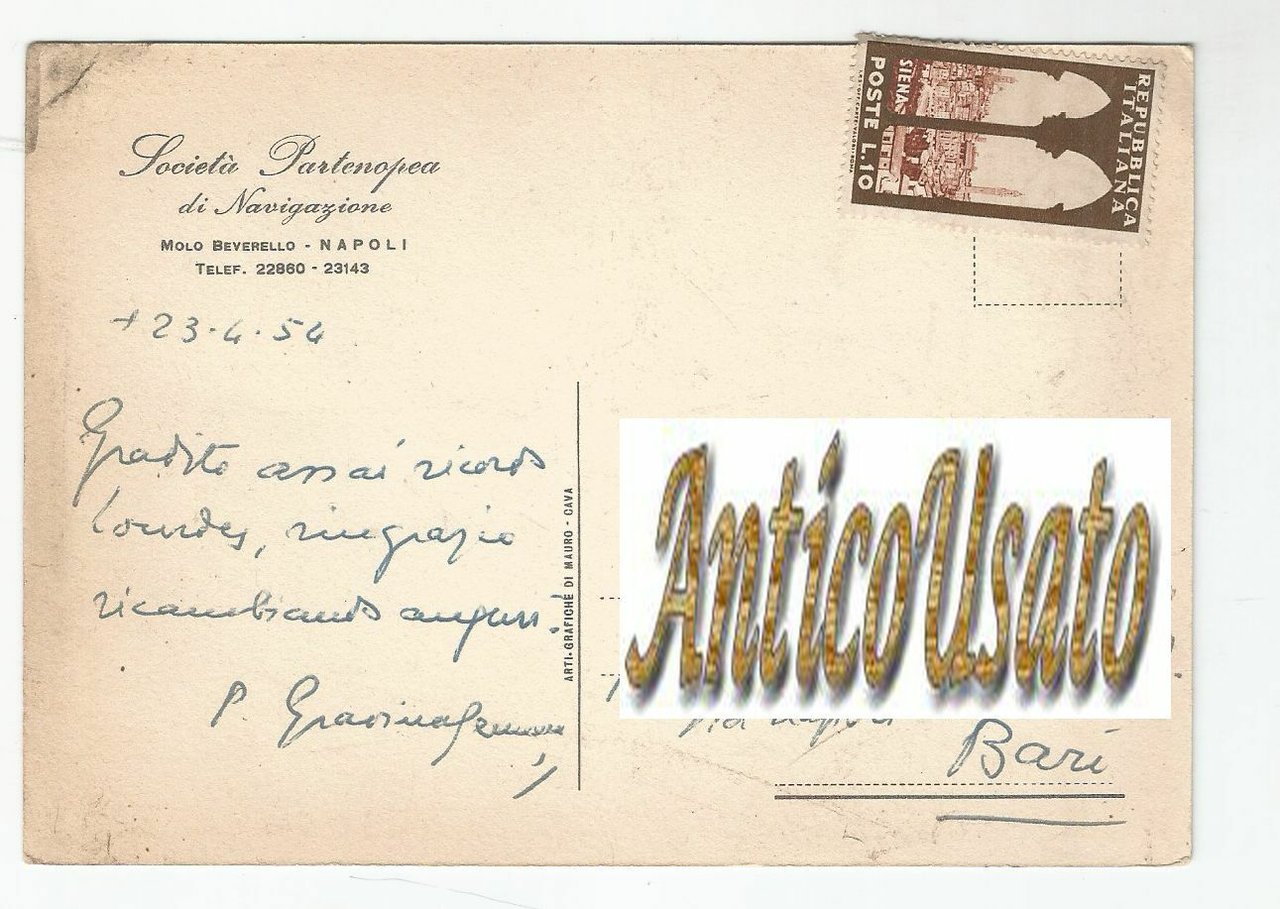 Società Partenopea
di Navigazione
MOLO BEVERELLO - NAPOLI
TELEF. 22860 - 23143
+ 23.4.54
Gradito assai ricordo
Lourdes, ringrazio
ricambiando auguri.
P. Gravina
ARTI-GRAFICHE DI MAURO - CAVA
REPUBBLICA
ITALIANA
SIENA
POSTE L.10
AnticoUsato
Bari